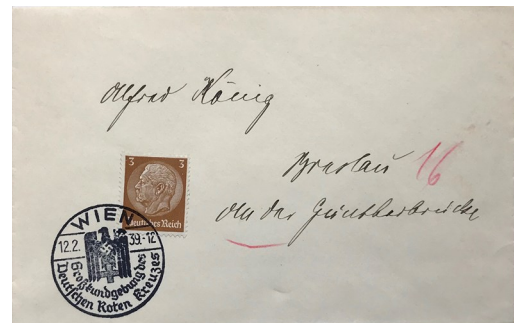 Alfred König
Breslau 16
An der Güntherbrücke
3 3
Deutsches Reich
WIEN
12.2. 39.-12
Großkundgebung des
Deutschen Roten Kreuzes